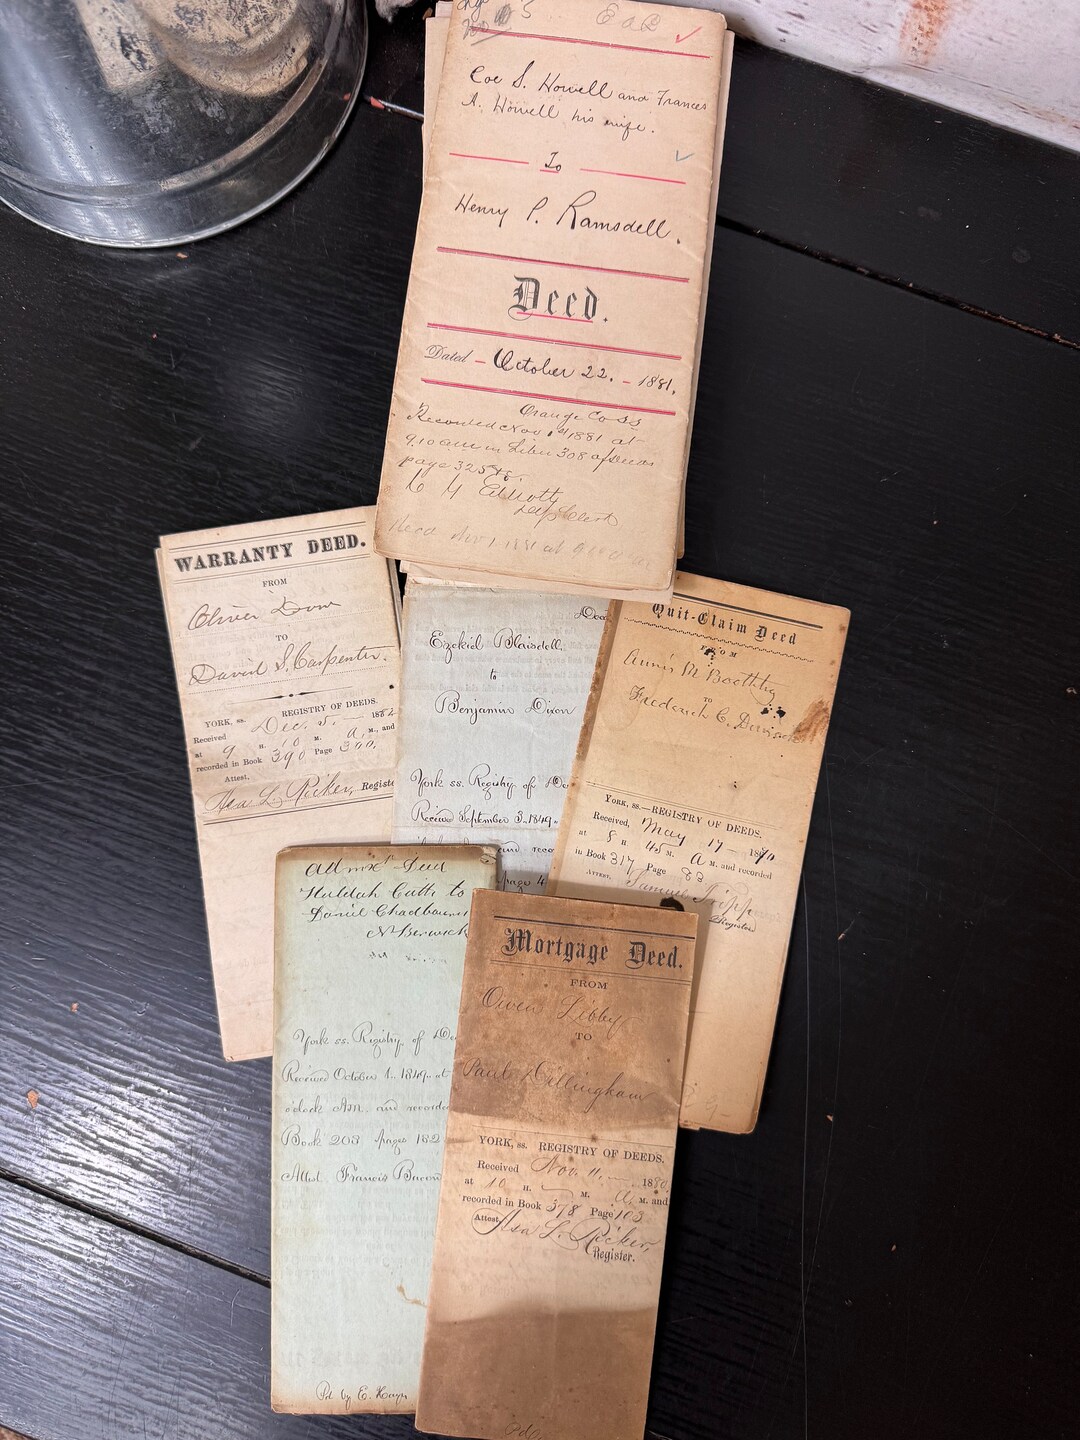 3 E O L
Coe S. Howell and Frances
A. Howell his wife.
To
Henry P. Ramsdell.
Deed.
Dated — October 22. — 1881.
Orange Co ss
Recorded Nov 1st 1881 at
9.10 a.m in Liber 308 of Deeds
page 325 &c.
Elliott
Dep Clerk
Nov 1 1881 at 9
WARRANTY DEED.
FROM
Oliver Dow
TO
David S. Carpenter.
YORK, ss. REGISTRY OF DEEDS.
Received Dec. 5. — 1882
at 9 H. 10 M. A M., and
recorded in Book 390 Page 300.
Attest,
Asa L. Ricker, Registe
Dee
Ezekiel Blaisdell,
to
Benjamin Dixon
York ss. Registry of De
Received September 3. 1849.
and reco
page 4
Quit-Claim Deed
FROM
Annis M Boothby
TO
Frederick C.
YORK, ss.—REGISTRY OF DEEDS.
Received, May 17 — 1870
at 8 H 45 M. A M., and recorded
in Book 317 Page 83
ATTEST, Samuel Tripp
Register
Admx Deed
Huldah Cutts to
Daniel Chadbourn
N Berwick
York ss. Registry of De
Received October 1. 1849. at
o'clock A.M. and recorded
Book 203 pages 182
Attest. Francis Bacon
Pd by E. Hayes
Mortgage Deed.
FROM
Owen Libby
TO
Paul Dillingham
YORK, ss. REGISTRY OF DEEDS.
Received Nov. 11. — 1880
at 10 H. — M. A M. and
recorded in Book 378 Page 103
Attest, Asa L. Ricker,
Register.